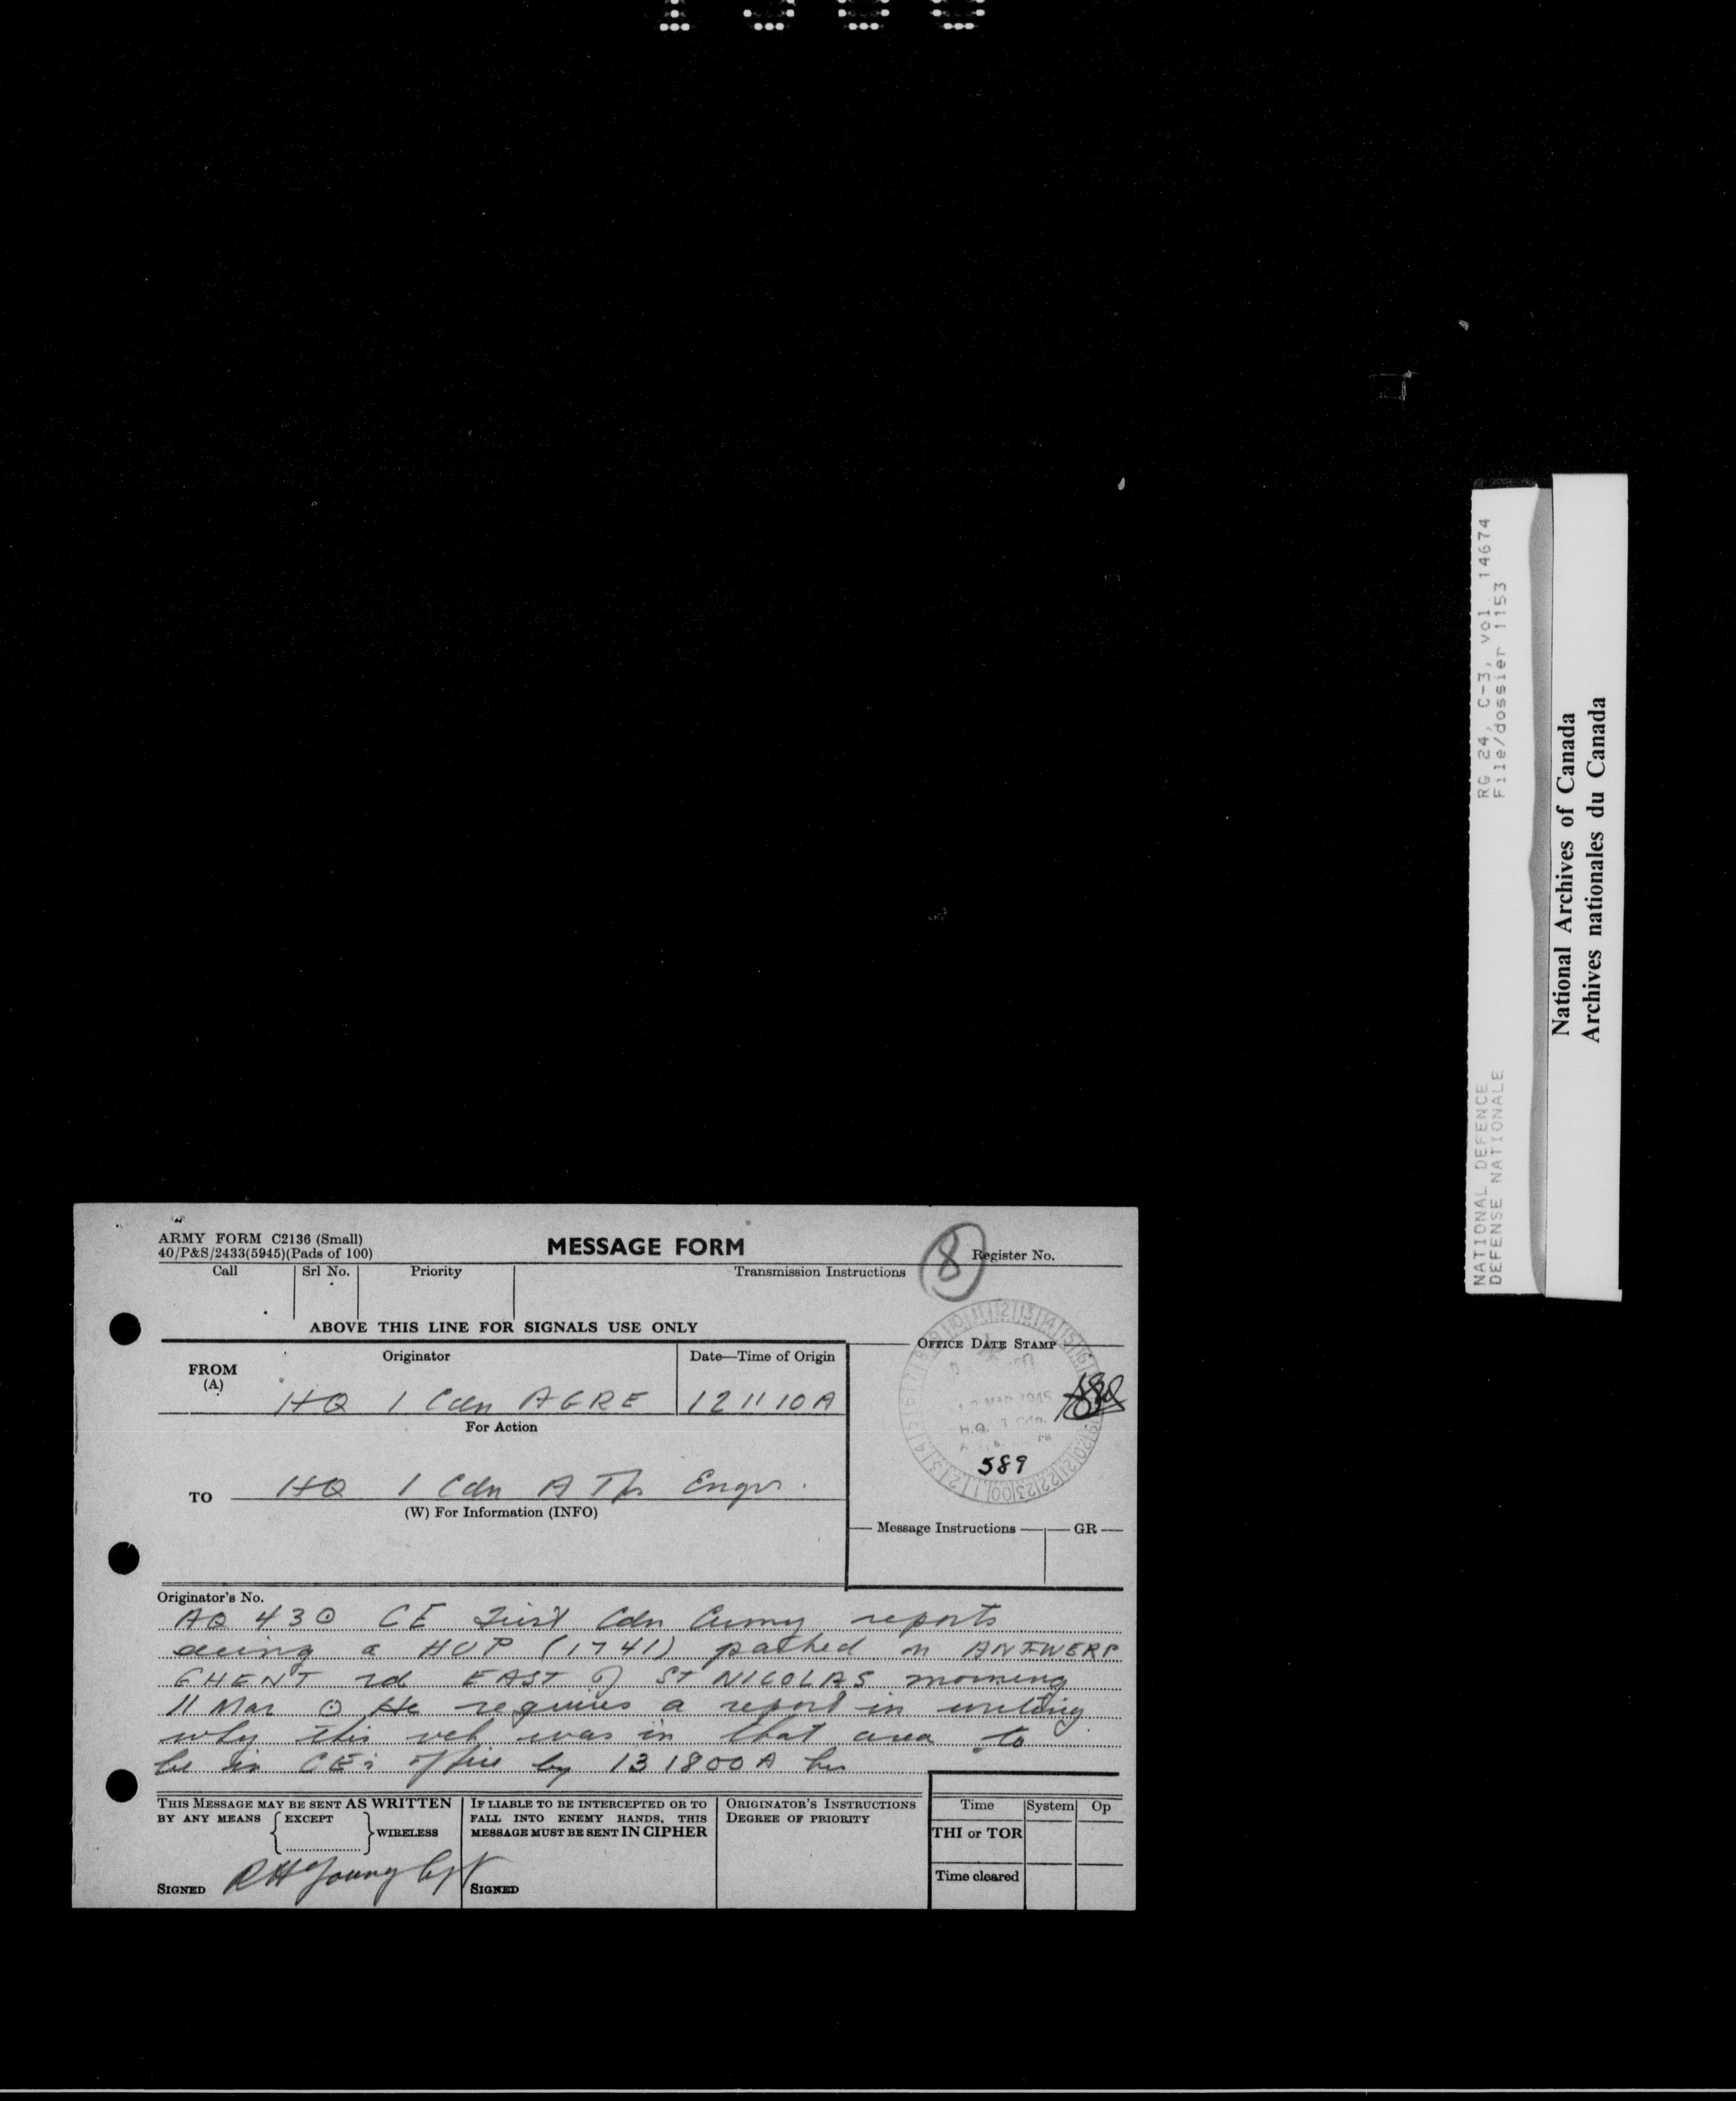 ARMY FORM C2136 (Small)
40/P&S/2433(5945)(Pads of 100)
MESSAGE FORM
8
Register No.
Call Srl No. Priority Transmission Instructions
ABOVE THIS LINE FOR SIGNALS USE ONLY
FROM
(A)
Originator
HQ 1 Cdn AGRE
Date—Time of Origin
121110A
OFFICE DATE STAMP
MAR 1945
H.Q. 1 Cdn.
589
For Action
TO HQ 1 Cdn A Tps Engrs.
(W) For Information (INFO)
Message Instructions GR
Originator's No.
AQ 430 CE First Cdn Army reports
seeing a HUP (1741) parked on ANTWERP
GHENT rd EAST of ST NICOLAS morning
11 Mar ⊙ He requires a report in writing
why this veh was in that area to
be in CE's office by 131800A hrs
THIS MESSAGE MAY BE SENT AS WRITTEN
BY ANY MEANS { EXCEPT } WIRELESS
SIGNED RH Young Capt
IF LIABLE TO BE INTERCEPTED OR TO
FALL INTO ENEMY HANDS, THIS
MESSAGE MUST BE SENT IN CIPHER
SIGNED
ORIGINATOR'S INSTRUCTIONS
DEGREE OF PRIORITY
Time System Op
THI or TOR
Time cleared
NATIONAL DEFENCE RG 24, C-3, vol. 14674
DEFENSE NATIONALE File/dossier 1153
National Archives of Canada
Archives nationales du Canada